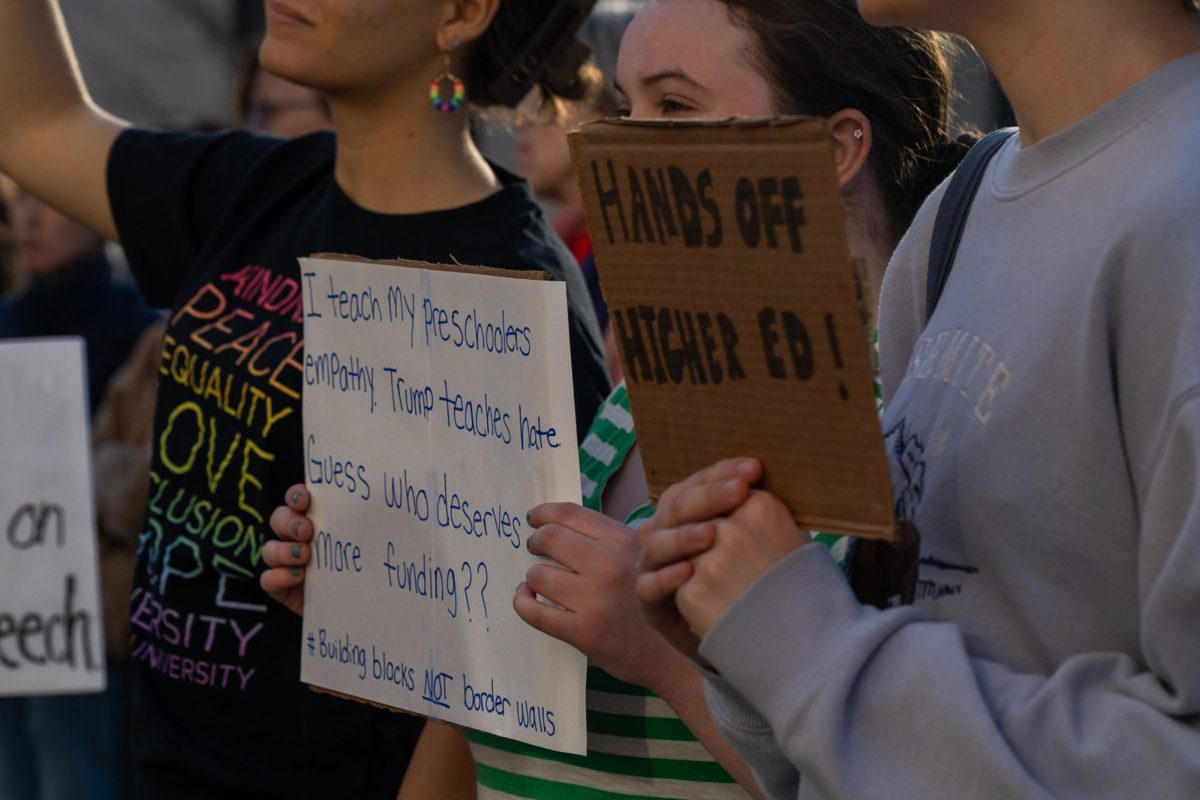 on
eech
KINDN
PEACE
EQUALITY
OVE
CLUSION
OPE
VERSITY
UNIVERSITY
I teach my preschoolers
empathy. Trump teaches hate.
Guess who deserves
more funding??
#Building blocks NOT border walls
HANDS OFF
HIGHER ED!